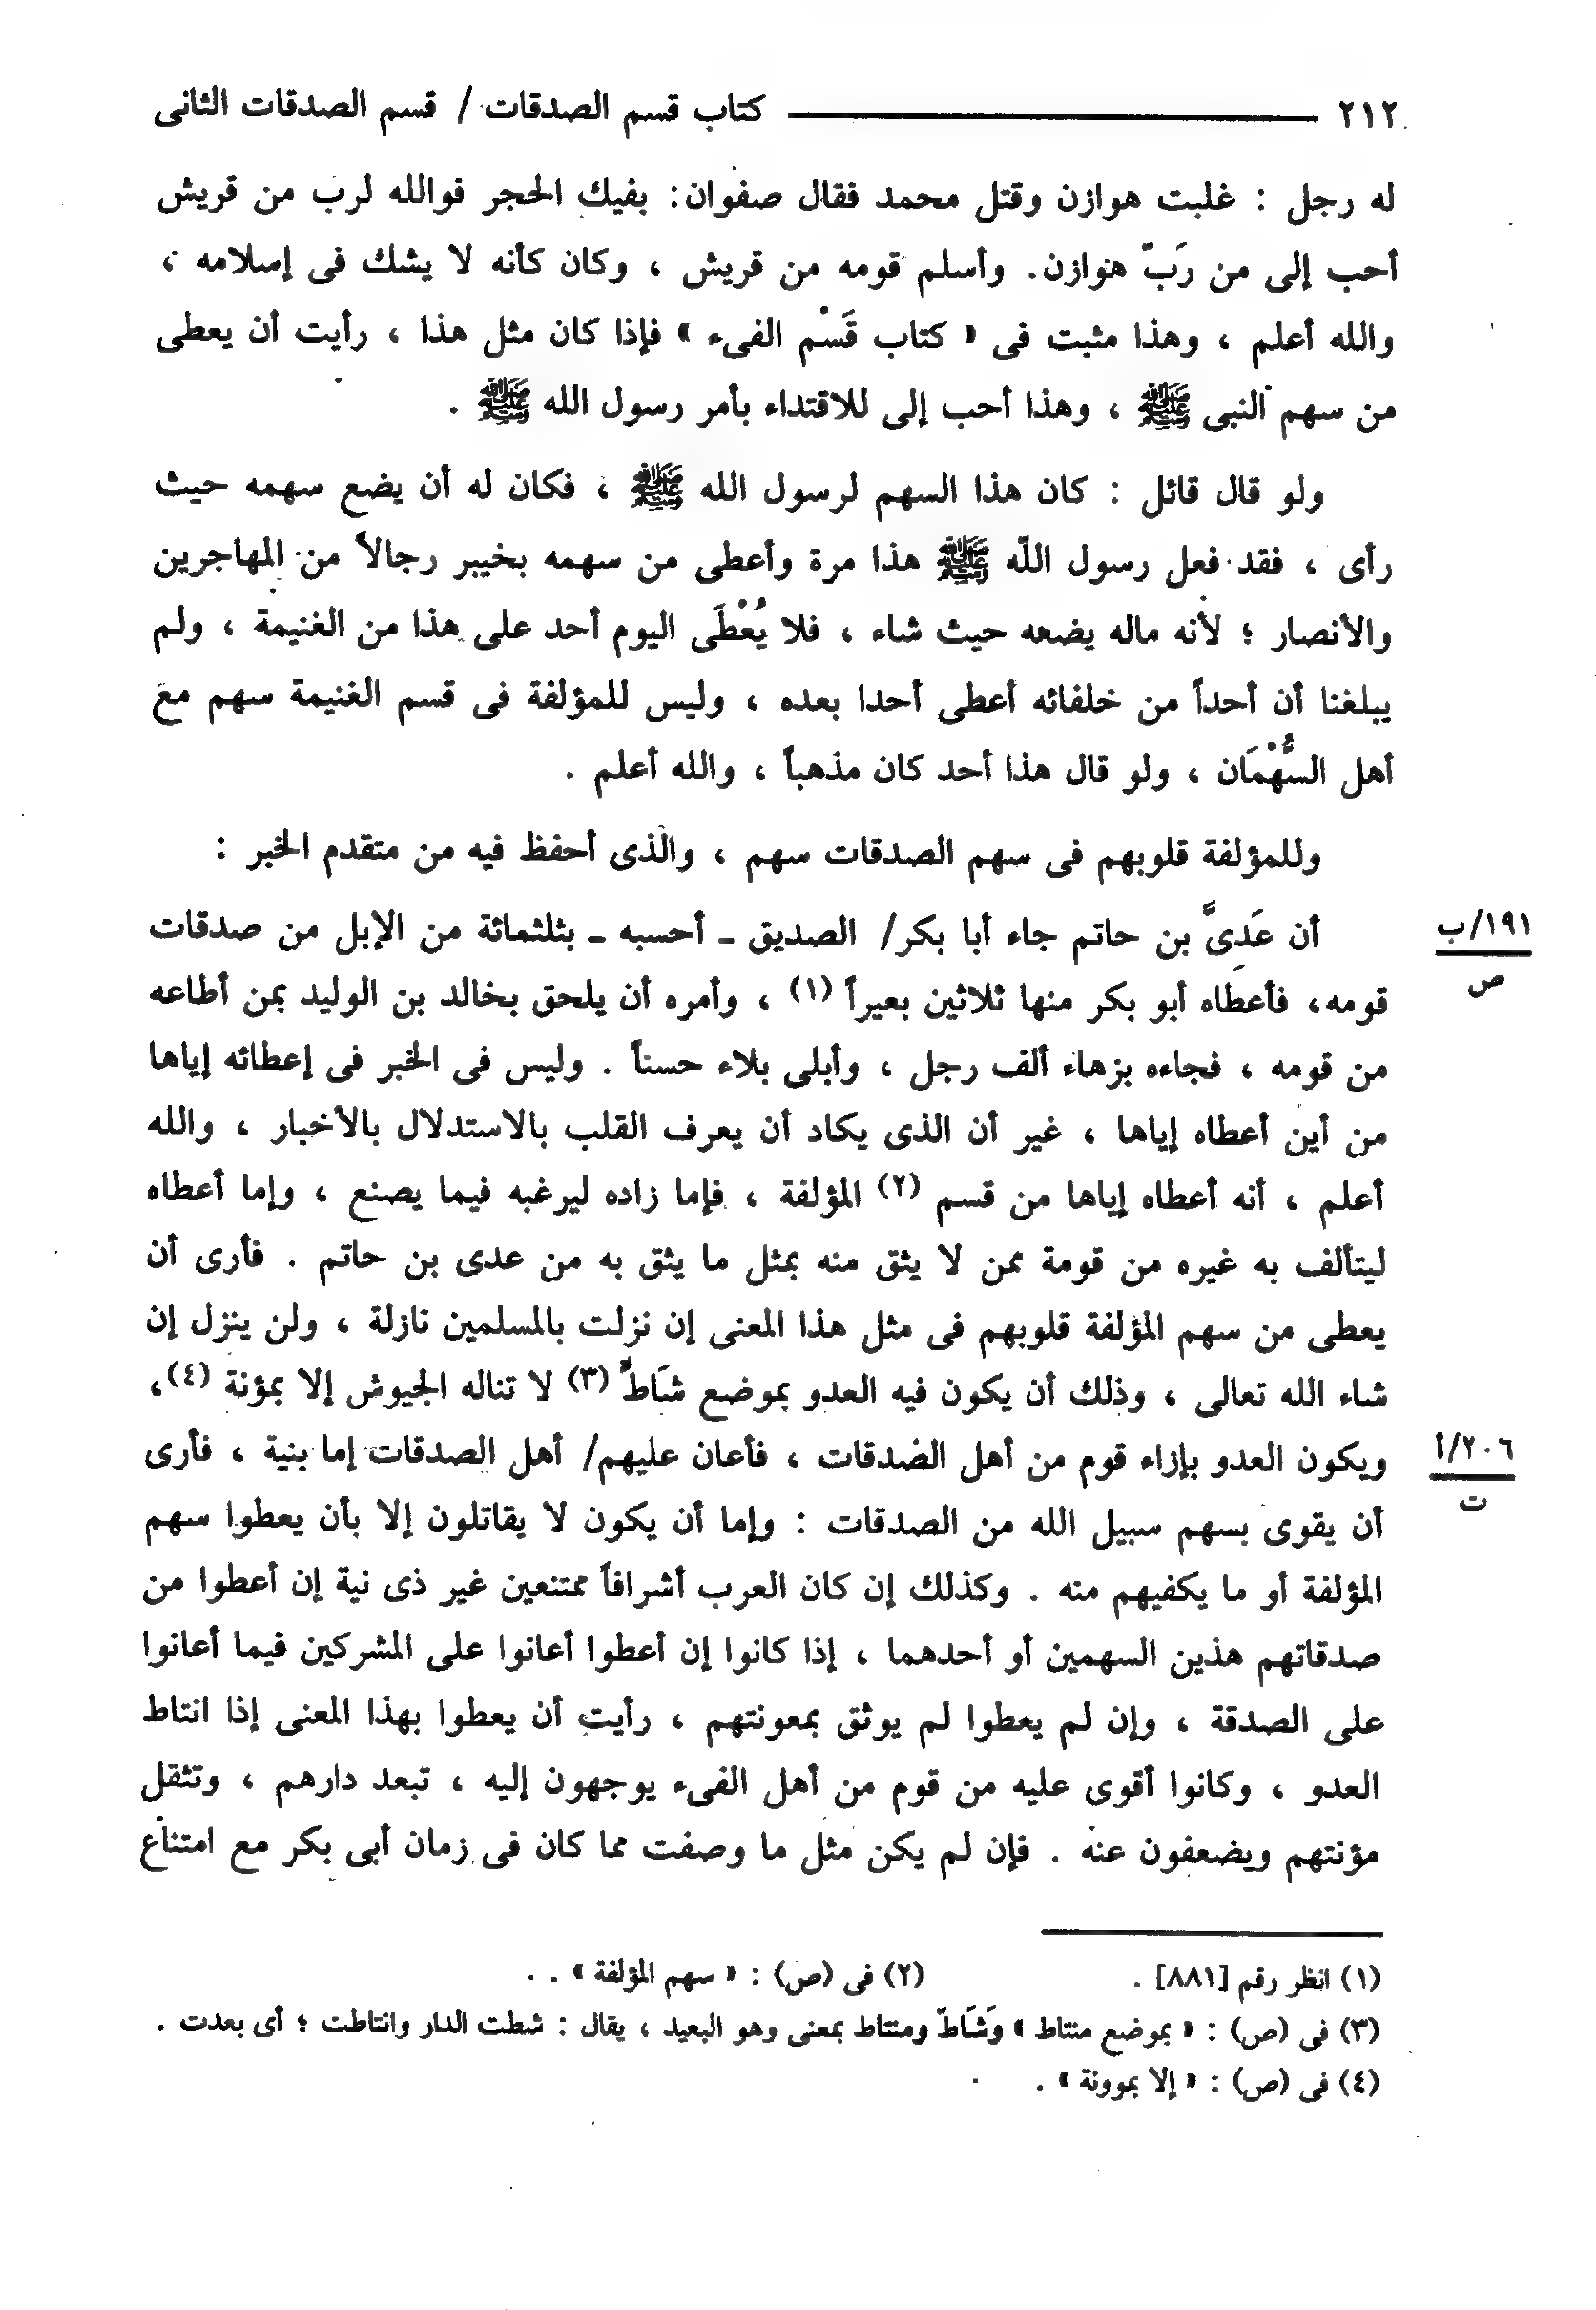 ٢١٢ ـــــــــ كتاب قسم الصدقات / قسم الصدقات الثانى
له رجل : غلبت هوازن وقتل محمد فقال صفوان: بفيك الحجر فوالله لرب من قريش
أحب إلى من رَبّ هوازن. وأسلم قومه من قريش ، وكان كأنه لا يشك فى إسلامه ،
والله أعلم ، وهذا مثبت فى « كتاب قَسْم الفىء » فإذا كان مثل هذا ، رأيت أن يعطى
من سهم النبى ﷺ ، وهذا أحب إلى للاقتداء بأمر رسول الله ﷺ .
ولو قال قائل : كان هذا السهم لرسول الله ﷺ ، فكان له أن يضع سهمه حيث
رأى ، فقد فعل رسول اللّه ﷺ هذا مرة وأعطى من سهمه بخيبر رجالاً من المهاجرين
والأنصار ؛ لأنه ماله يضعه حيث شاء ، فلا يُعْطَى اليوم أحد على هذا من الغنيمة ، ولم
يبلغنا أن أحداً من خلفائه أعطى أحدا بعده ، وليس للمؤلفة فى قسم الغنيمة سهم مع
أهل السُّهْمَان ، ولو قال هذا أحد كان مذهباً ، والله أعلم .
وللمؤلفة قلوبهم فى سهم الصدقات سهم ، والذى أحفظ فيه من متقدم الخبر :
أن عَدِىَّ بن حاتم جاء أبا بكر/ الصديق ـ أحسبه ـ بثلثمائة من الإبل من صدقات
١٩١/ب
ص
قومه، فأعطاه أبو بكر منها ثلاثين بعيراً (١) ، وأمره أن يلحق بخالد بن الوليد بمن أطاعه
من قومه ، فجاءه بزهاء ألف رجل ، وأبلى بلاء حسناً . وليس فى الخبر فى إعطائه إياها
من أين أعطاه إياها ، غير أن الذى يكاد أن يعرف القلب بالاستدلال بالأخبار ، والله
أعلم ، أنه أعطاه إياها من قسم (٢) المؤلفة ، فإما زاده ليرغبه فيما يصنع ، وإما أعطاه
ليتألف به غيره من قومة ممن لا يثق منه بمثل ما يثق به من عدى بن حاتم . فأرى أن
يعطى من سهم المؤلفة قلوبهم فى مثل هذا المعنى إن نزلت بالمسلمين نازلة ، ولن ينزل إن
شاء الله تعالى ، وذلك أن يكون فيه العدو بموضع شَاطٍّ (٣) لا تناله الجيوش إلا بمؤنة (٤)،
ويكون العدو بإزاء قوم من أهل الصدقات ، فأعان عليهم/ أهل الصدقات إما بنية ، فأرى
٢٠٦/أ
ت
أن يقوى بسهم سبيل الله من الصدقات : وإما أن يكون لا يقاتلون إلا بأن يعطوا سهم
المؤلفة أو ما يكفيهم منه . وكذلك إن كان العرب أشرافاً ممتنعين غير ذى نية إن أعطوا من
صدقاتهم هذين السهمين أو أحدهما ، إذا كانوا إن أعطوا أعانوا على المشركين فيما أعانوا
على الصدقة ، وإن لم يعطوا لم يوثق بمعونتهم ، رأيت أن يعطوا بهذا المعنى إذا انتاط
العدو ، وكانوا أقوى عليه من قوم من أهل الفىء يوجهون إليه ، تبعد دارهم ، وتثقل
مؤنتهم ويضعفون عنه . فإن لم يكن مثل ما وصفت مما كان فى زمان أبى بكر مع امتناع
(١) انظر رقم [٨٨١] . (٢) فى (ص) : « سهم المؤلفة » .
(٣) فى (ص) : « بموضع منتاط » وَشَاطّ ومنتاط بمعنى وهو البعيد ، يقال : شطت الدار وانتاطت ؛ أى بعدت .
(٤) فى (ص) : « إلا بموونة » .